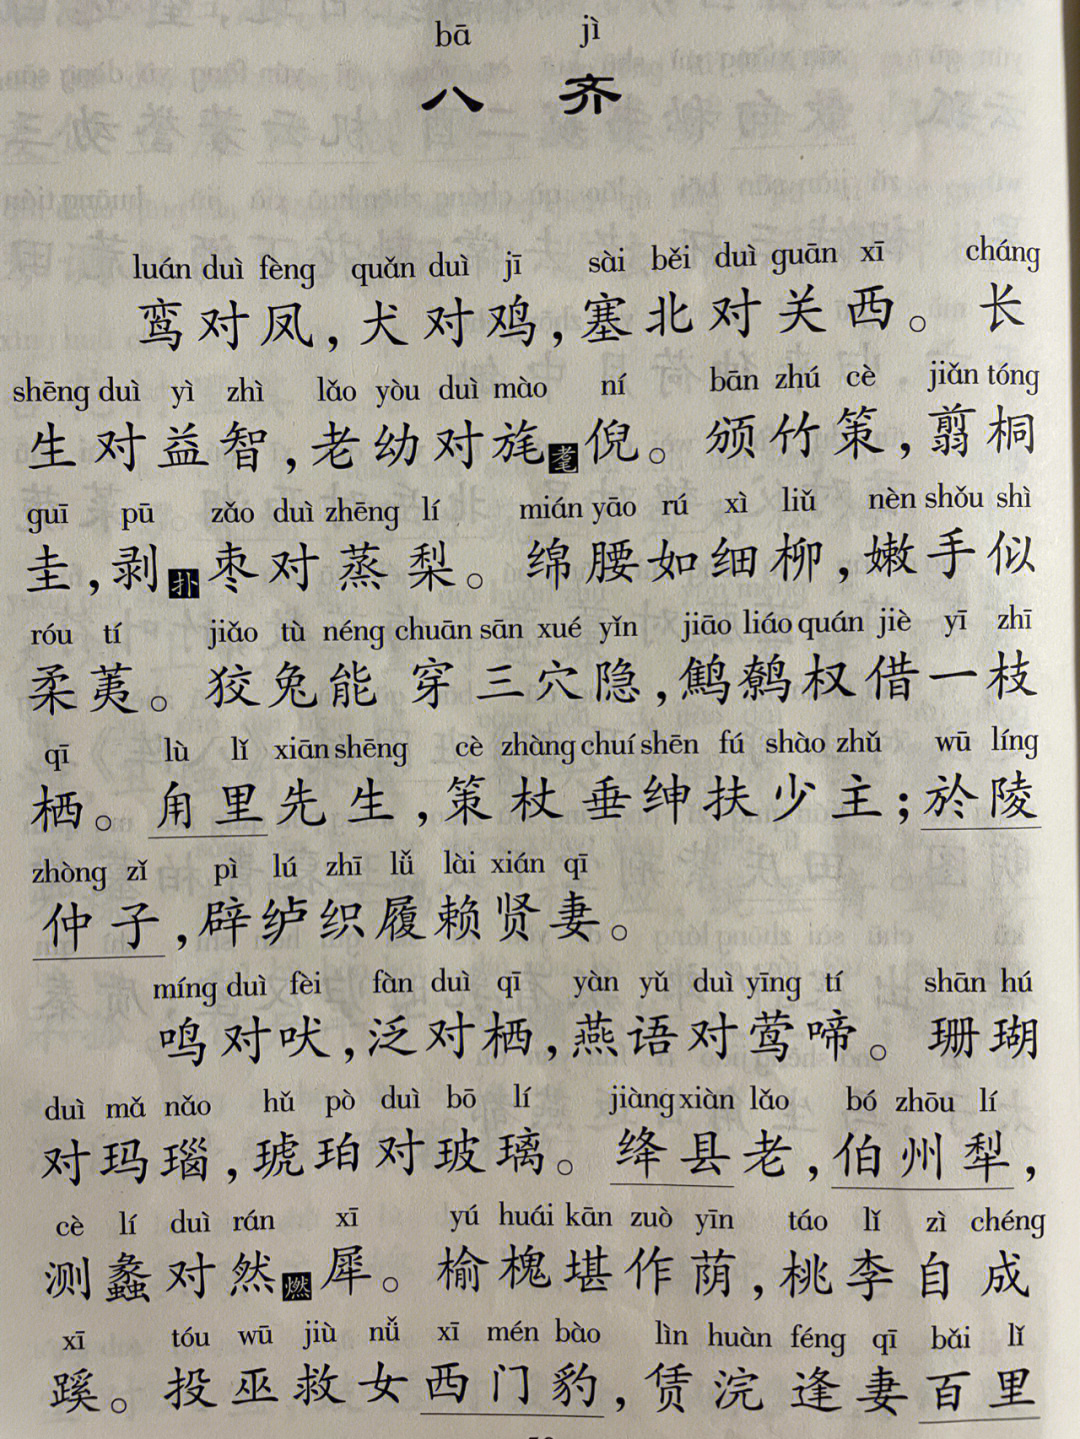 bā jì
八 齐
luán duì fèng quǎn duì jī sài běi duì guān xī cháng
鸾对凤，犬对鸡，塞北对关西。长
shēng duì yì zhì lǎo yòu duì mào ní bān zhú cè jiǎn tóng
生对益智，老幼对旄耄倪。颁竹策，翦桐
guī pū zǎo duì zhēng lí mián yāo rú xì liǔ nèn shǒu shì
圭，剥扑枣对蒸梨。绵腰如细柳，嫩手似
róu tí jiǎo tù néng chuān sān xué yǐn jiāo liáo quán jiè yī zhī
柔荑。狡兔能穿三穴隐，鹪鹩权借一枝
qī lù lǐ xiān shēng cè zhàng chuí shēn fú shào zhǔ wū líng
栖。角里先生，策杖垂绅扶少主；於陵
zhòng zǐ pì lú zhī lǚ lài xián qī
仲子，辟𬬻织履赖贤妻。
míng duì fèi fàn duì qī yàn yǔ duì yīng tí shān hú
鸣对吠，泛对栖，燕语对莺啼。珊瑚
duì mǎ nǎo hǔ pò duì bō lí jiàng xiàn lǎo bó zhōu lí
对玛瑙，琥珀对玻璃。绛县老，伯州犁，
cè lí duì rán xī yú huái kān zuò yīn táo lǐ zì chéng
测蠡对然燃犀。榆槐堪作荫，桃李自成
xī tóu wū jiù nǚ xī mén bào lìn huàn féng qī bǎi lǐ
蹊。投巫救女西门豹，赁浣逢妻百里